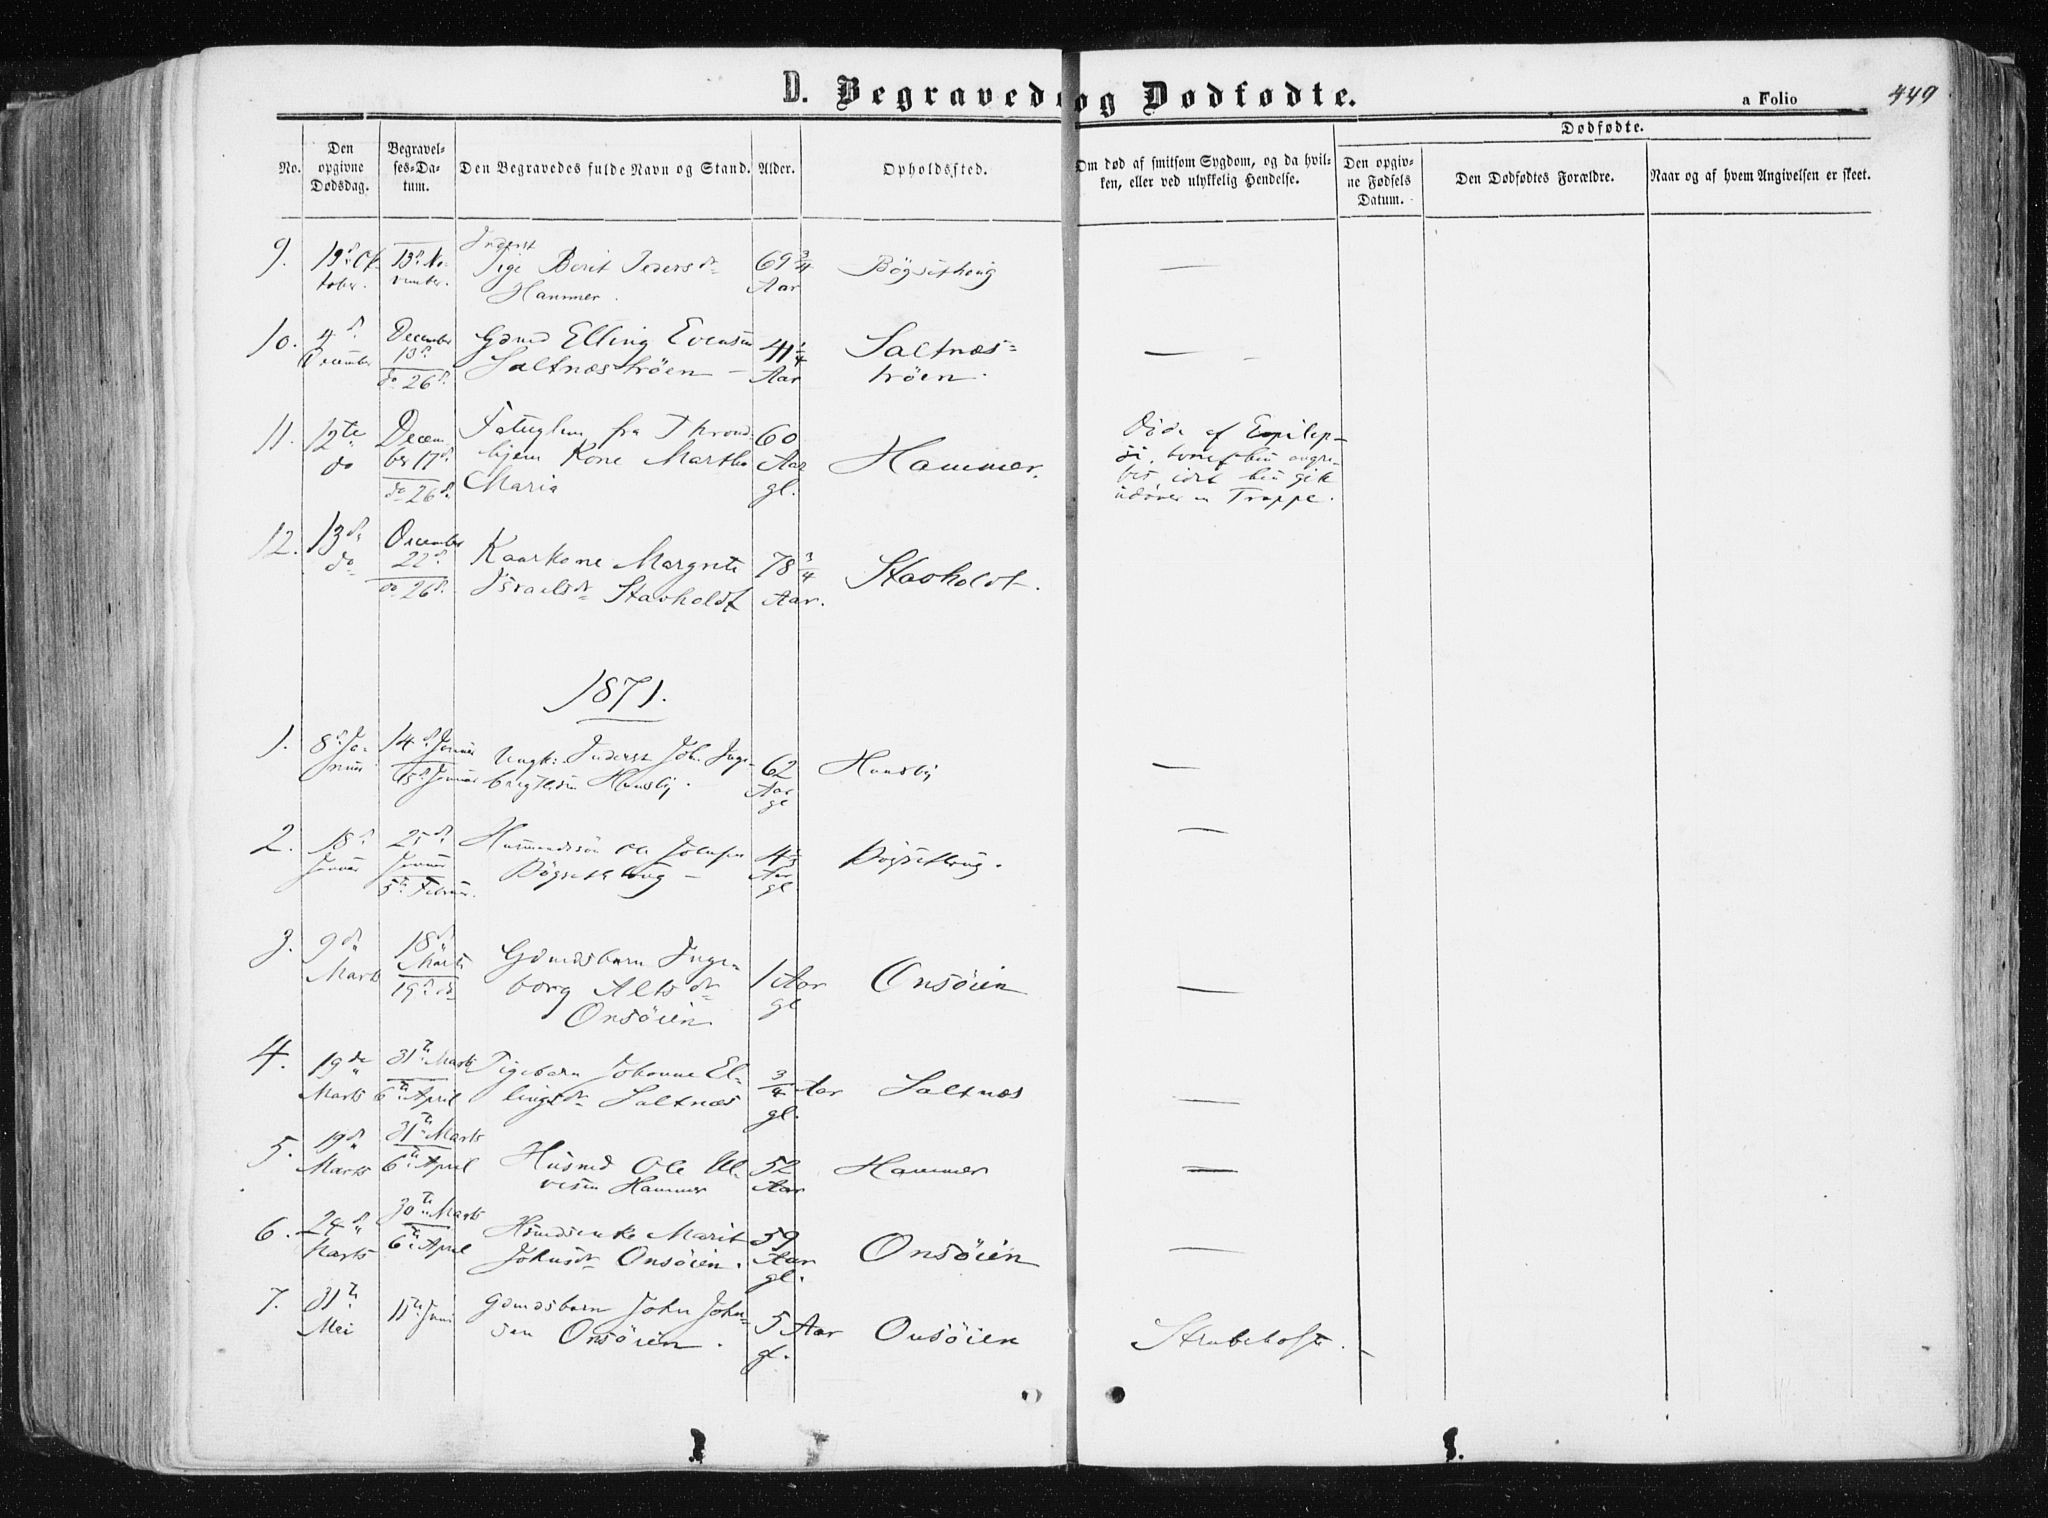 D. Begravede og Dødfødte.
a Folio 449
Dødfødte.
No.
Den opgivne Dødsdag.
Begravelses-Datum.
Den Begravedes fulde Navn og Stand.
Alder.
Opholdssted.
Om død af smitsom Sygdom, og da hvilken, eller ved ulykkelig Hendelse.
Den opgivne Fødsels Datum.
Den Dødfødtes Forældre.
Naar og af hvem Angivelsen er skeet.
9. 19d Oktober. 13d November. Inderst Pige Berit Pedersdr Hammer. 69 3/4 Aar Bøgsethoug —
10. 4d December December 13d do 26d Gdmd Elling Evensen Saltnæstrøen — 41 1/4 Aar Saltnæstrøen. —
11. 12te do December 17d do 26d fra Throndhjem Kone Martha Maria 60 Aar gl. Hammer. Døde af Epilepsi, angrebet, idet hun gik udover en Trappe.
12. 13d do December 22d do 26d Kaarkone Margrete Israelsdr Stavholdt 78 3/4 Aar. Stavholdt.
1871.
1. 8d Januar 14d Januar 15d Januar Ungk: Inderst Joh. Ingebrigtsen Hansby. 62 Aar gl Hansby —
2. 18d Januar 25d Januar 5te Februar Husmandssøn Ole Johnsen Bøgsethoug — Aar gl Bøgsethoug. —
3. 9d Marts 18d Marts 19d do Gdmdsbarn Ingeborg Altsdr Onsøien 1 Aar gl Onsøien —
4. 19de Marts 31te Marts 6te April Pigebarn Johanne Ellingsdr Saltnæs 3/4 Aar gl. Saltnæs —
5. 19d Marts 31te Marts 6te April Husmd Ole Hammer 52 Aar Hammer —
6. 24d Marts 30te Marts 6te April Hsmdsenke Marit Johnsdr Onsøien. 59 Aar gl. Onsøien —
7. 31te Mai 11te Juni Gdmdsbarn John Johnsen Onsøien. 5 Aar gl. Onsøien Strubehoste.